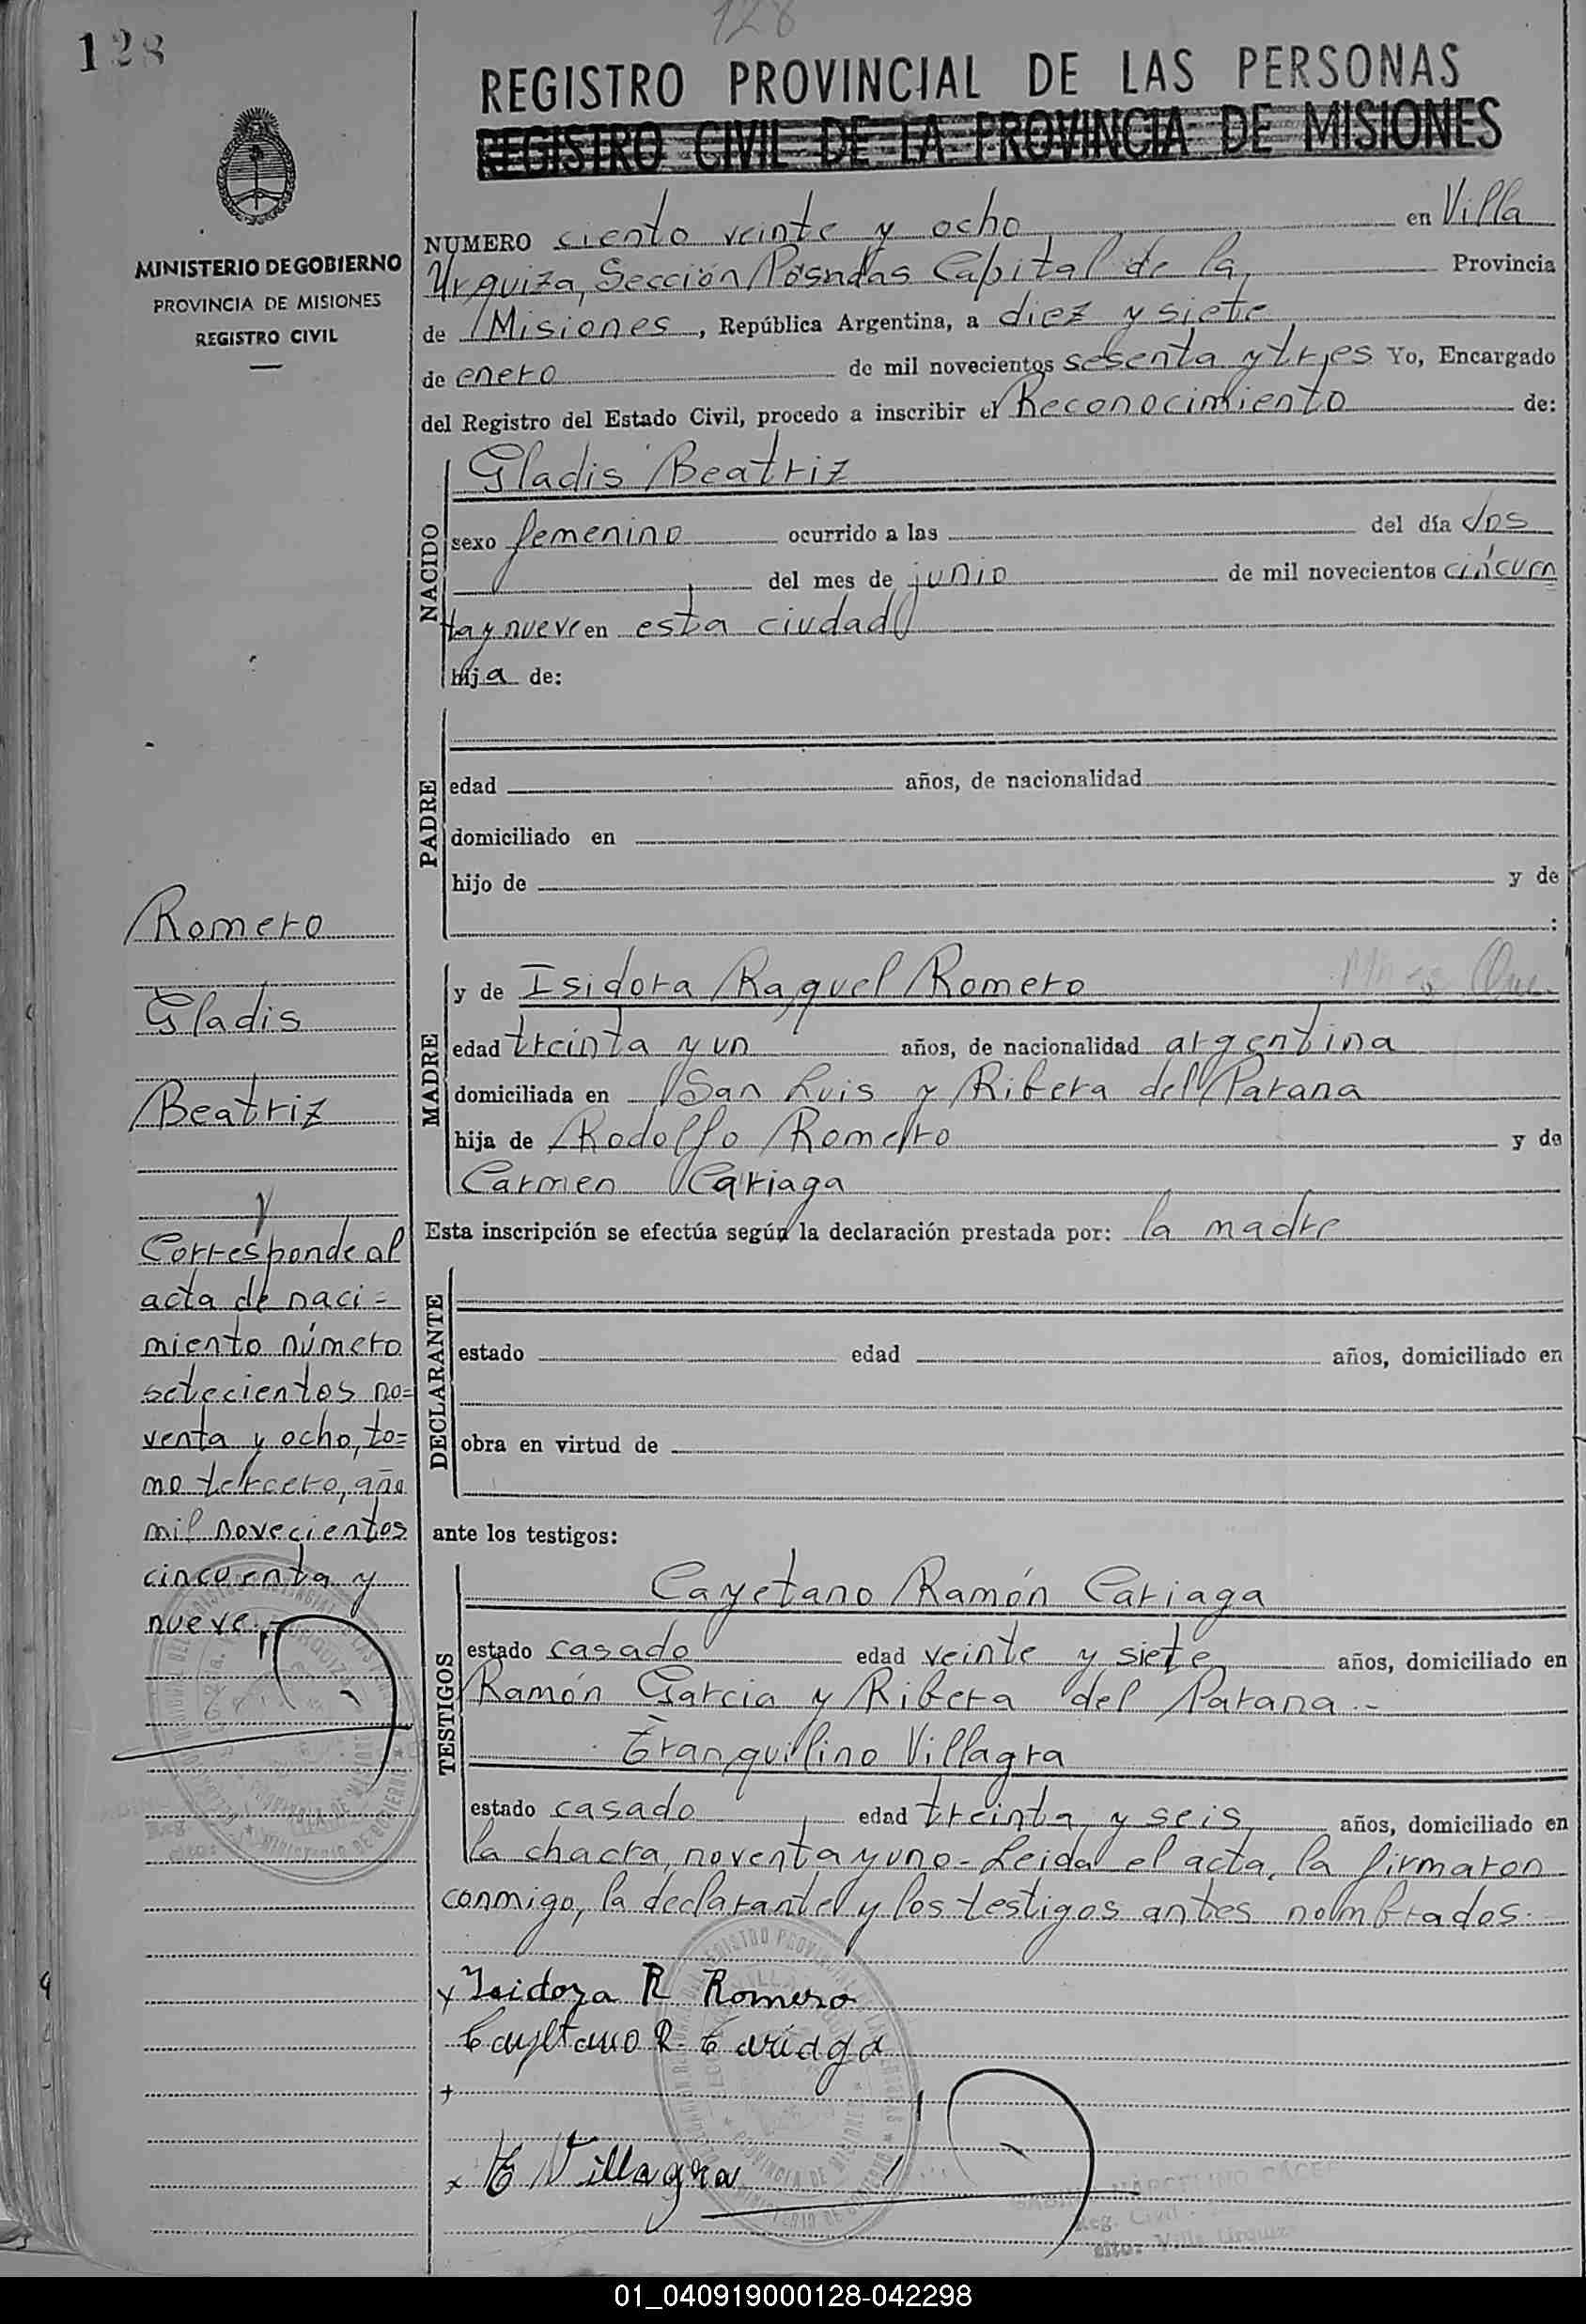 128
128
REGISTRO PROVINCIAL DE LAS PERSONAS
REGISTRO CIVIL DE LA PROVINCIA DE MISIONES
MINISTERIO DE GOBIERNO
PROVINCIA DE MISIONES
REGISTRO CIVIL
NUMERO ciento veinte y ocho en Villa
Urquiza, Sección Posadas Capital de la Provincia
de Misiones, República Argentina, a diez y siete
de enero de mil novecientos sesenta y tres Yo, Encargado
del Registro del Estado Civil, procedo a inscribir el Reconocimiento de:
NACIDO
Gladis Beatriz
sexo femenino ocurrido a las del día dos
del mes de junio de mil novecientos cincuen
ta y nueve en esta ciudad
hija de:
PADRE
edad años, de nacionalidad
domiciliado en
hijo de y de
:
MADRE
y de Isidora Raquel Romero
edad treinta y un años, de nacionalidad argentina
domiciliada en San Luis y Ribera del Parana
hija de Rodolfo Romero y de
Carmen Cariaga
Esta inscripción se efectúa según la declaración prestada por: la madre
DECLARANTE
estado edad años, domiciliado en
obra en virtud de
ante los testigos:
TESTIGOS
Cayetano Ramón Cariaga
estado casado edad veinte y siete años, domiciliado en
Ramón Garcia y Ribera del Parana.-
Tranquilino Villagra
estado casado edad treinta y seis años, domiciliado en
la chacra, noventa y uno- Leida el acta, la firmaron
conmigo, la declarante y los testigos antes nombrados.
x Isidora R Romero
Cayetano R. Cariaga
+
x T Villagra
Romero
Gladis
Beatriz
Corresponde al
acta de naci=
miento número
setecientos no=
venta y ocho, to=
mo tercero, año
mil novecientos
cincuenta y
nueve.-
MARCELINO CÁCER
Reg. Civil
Villa Urquiza
01_040919000128-042298